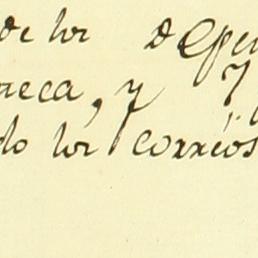 de los depen
neca, y
do los correos